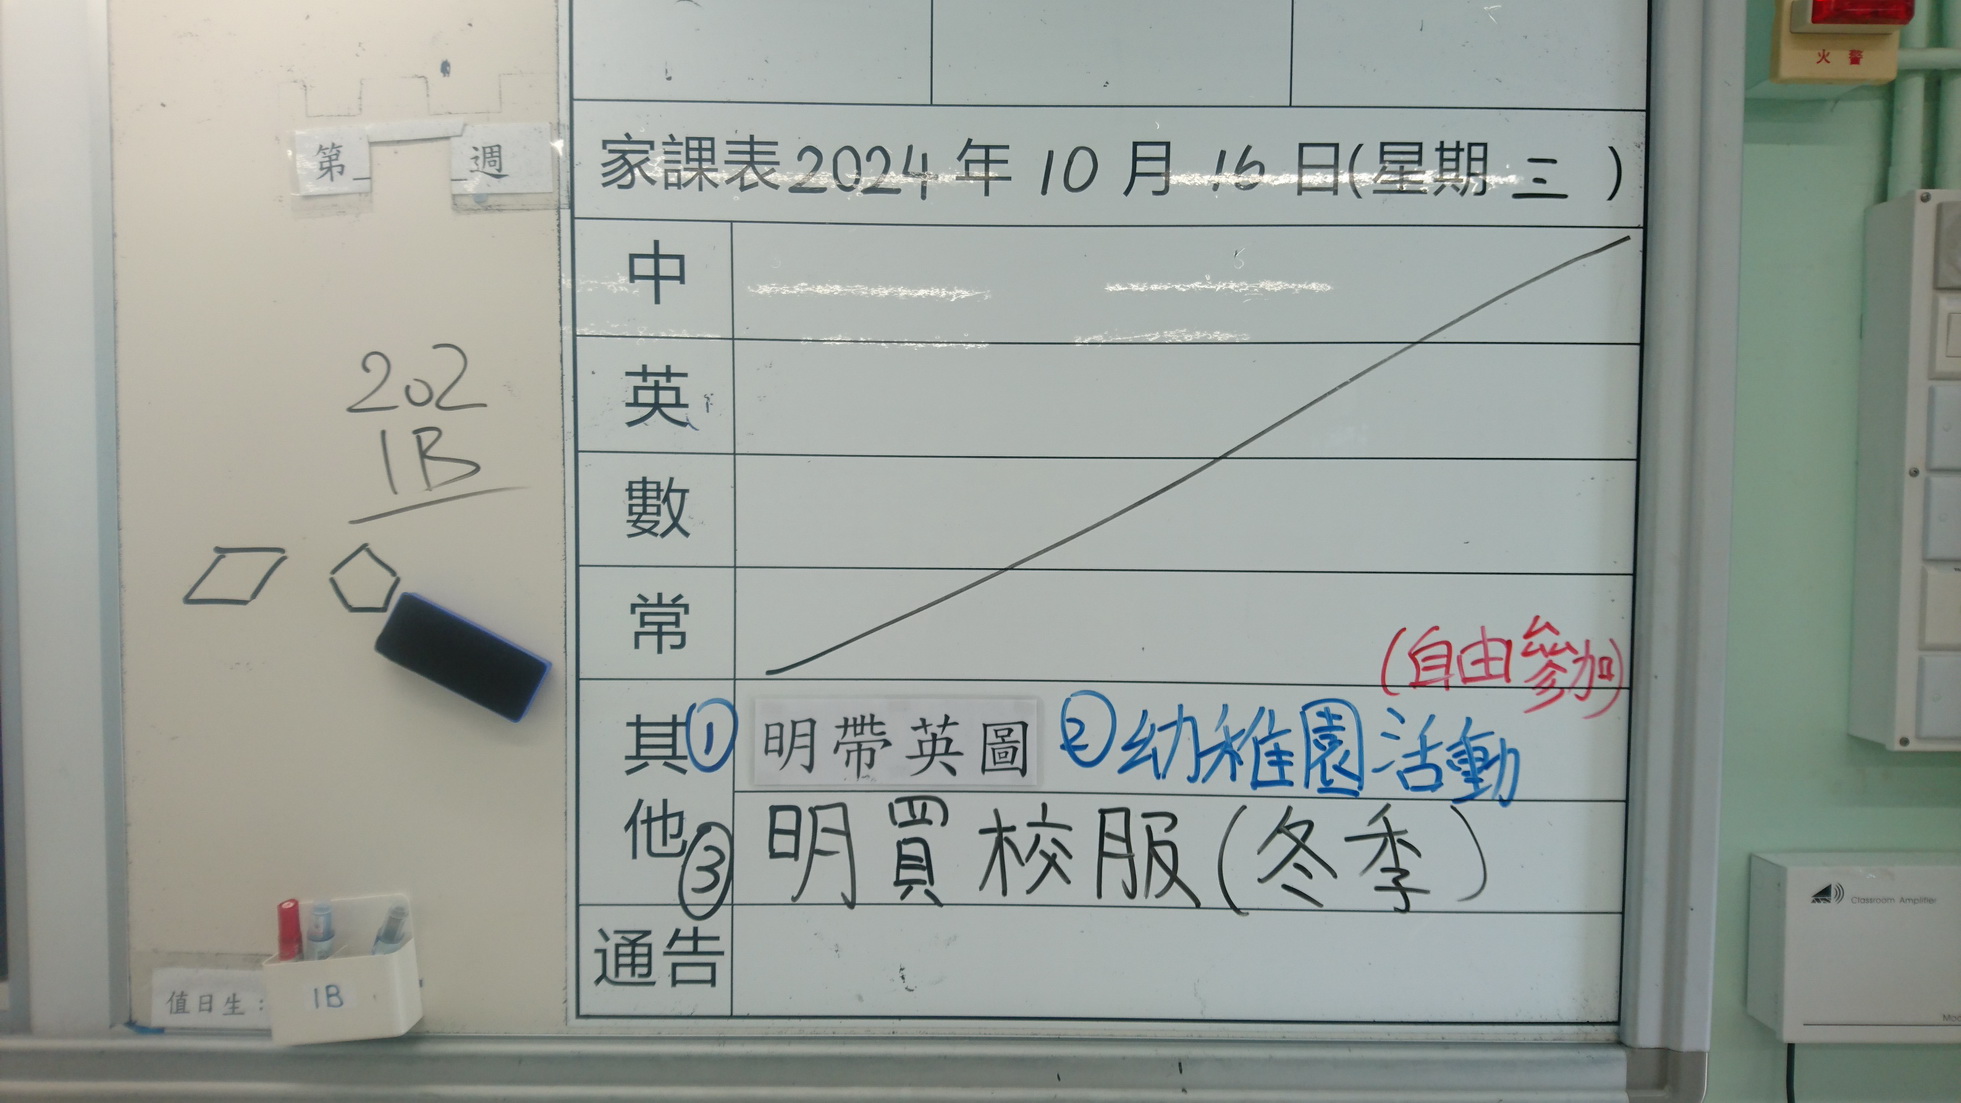 火警
第_ _週
家課表2024年10月16日(星期三)
中
英
數
常
(自由參加)
其他
①明帶英圖 ②幼稚園活動
③明買校服(冬季)
通告
202
1B
值日生:
1B
Classroom Amplifier